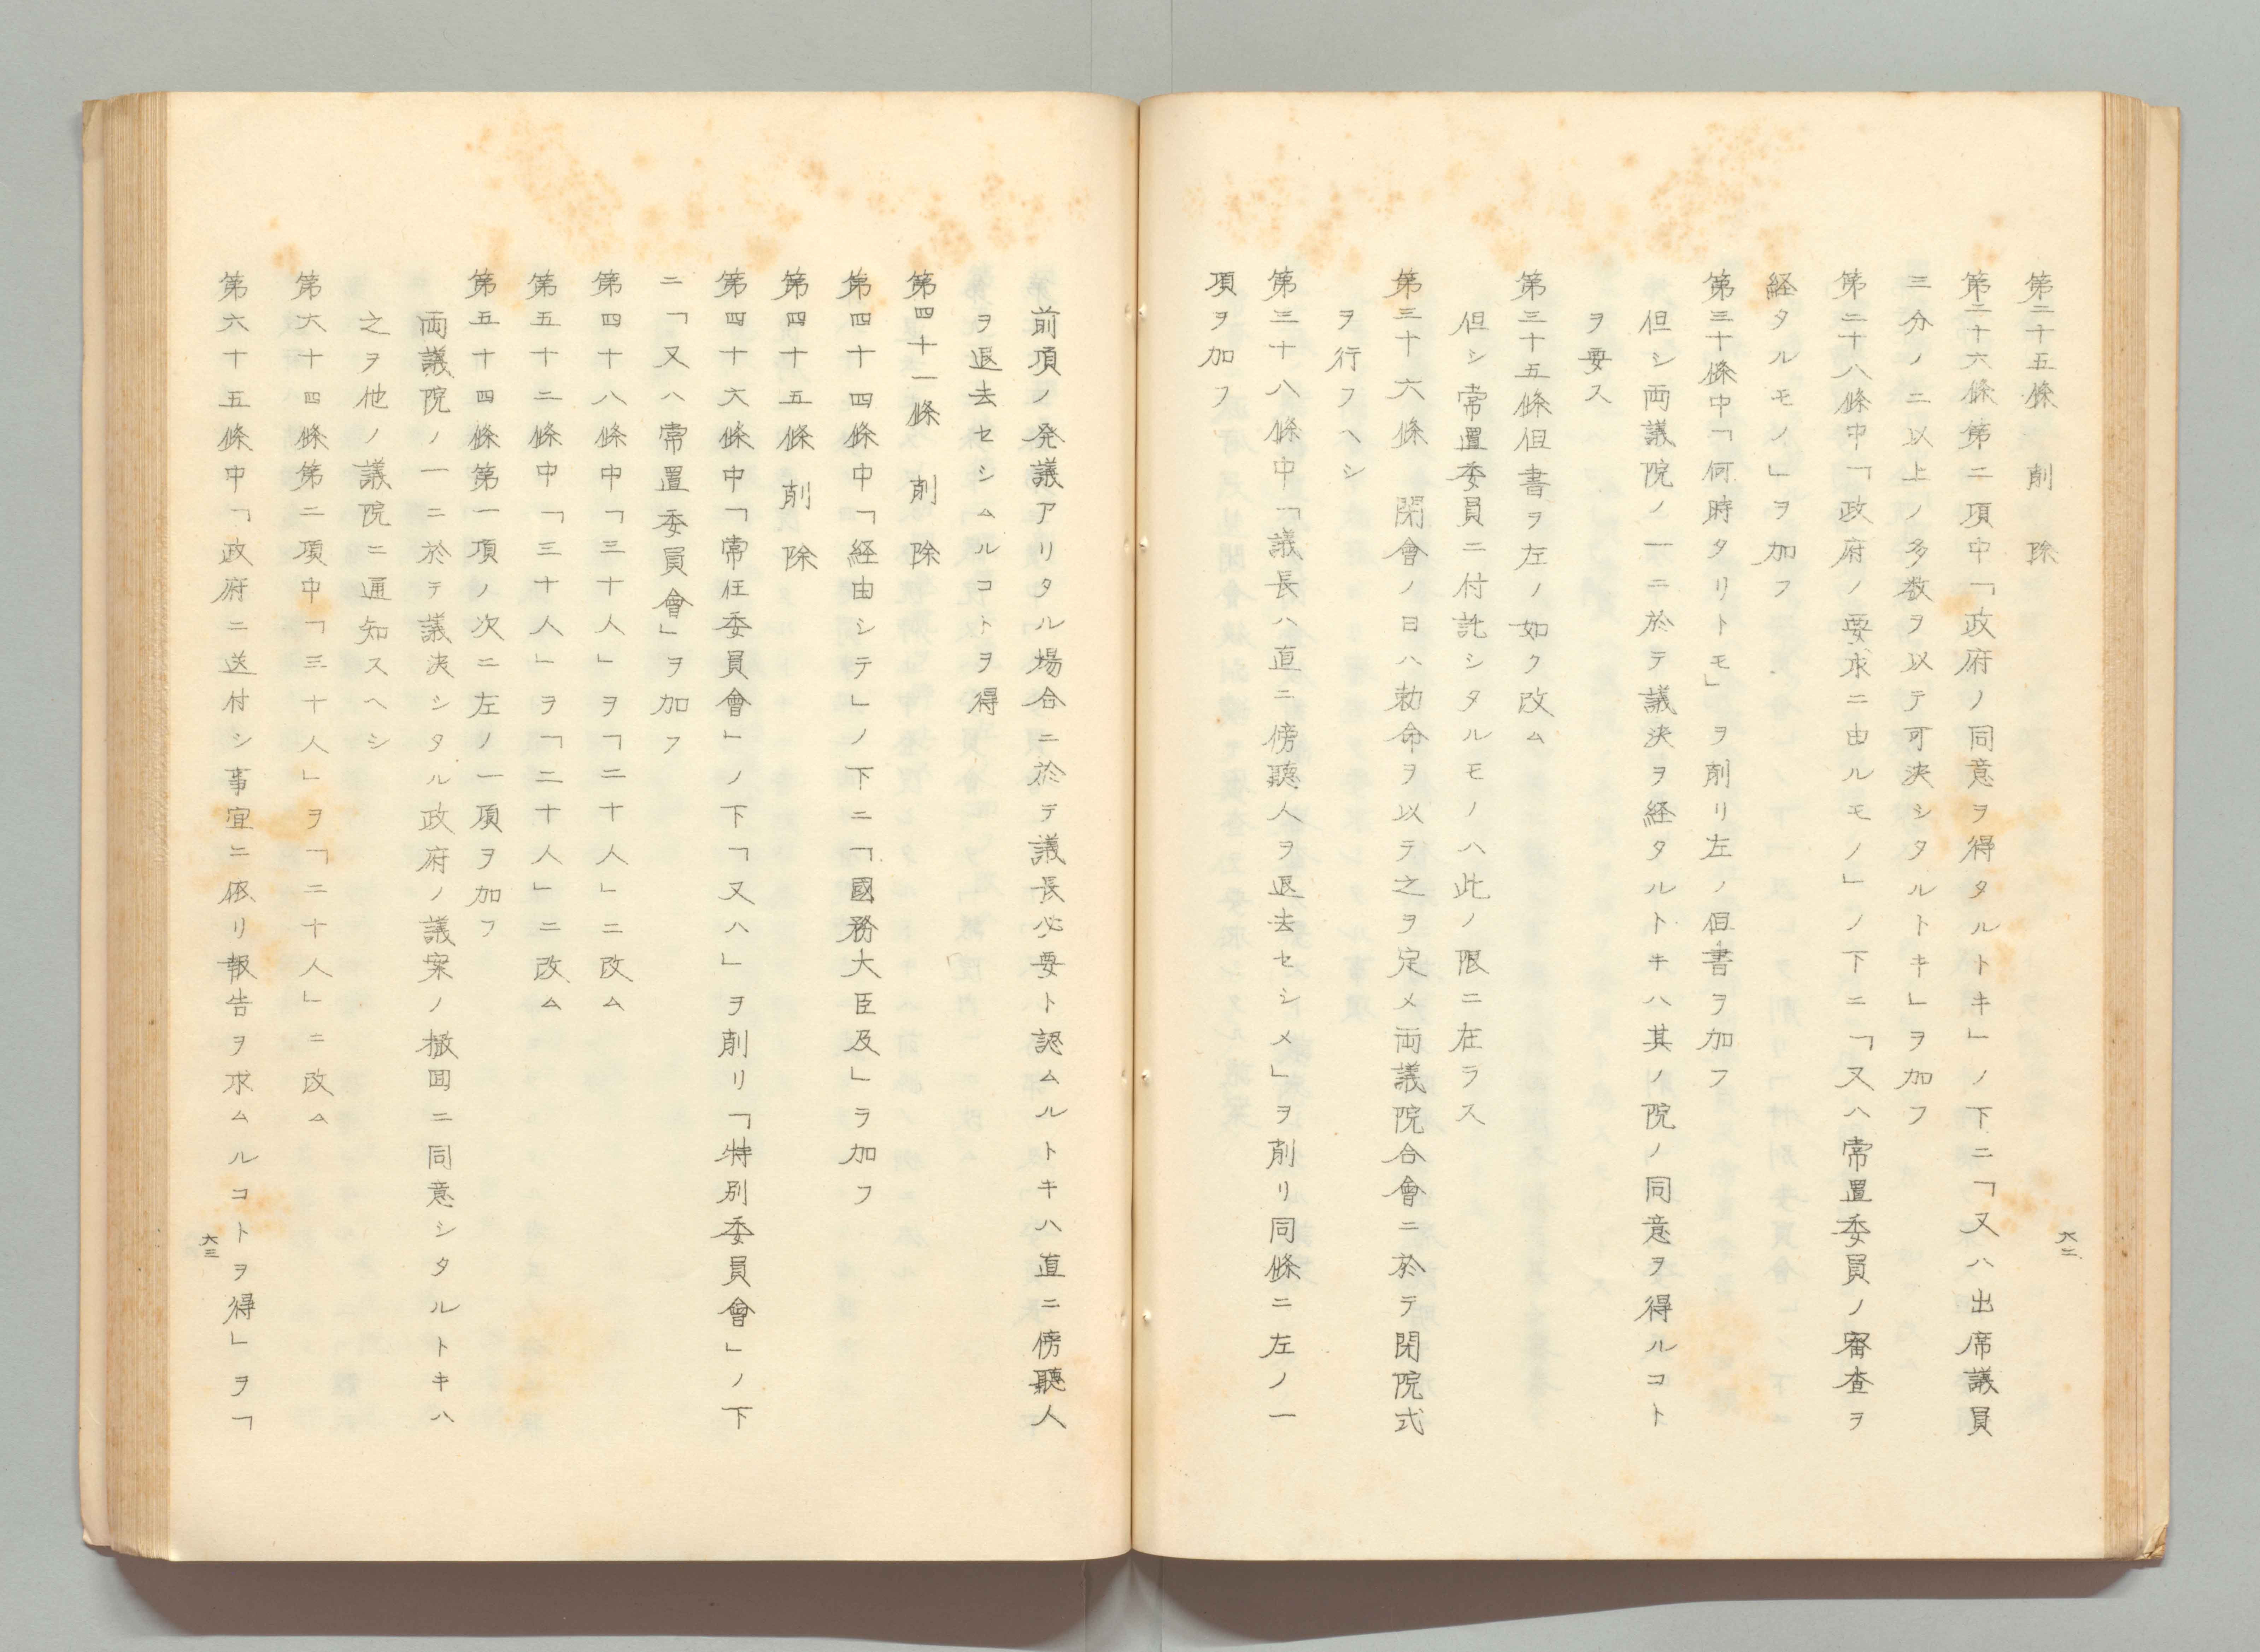 第二十五條　削　除
第二十六條第二項中「政府ノ同意ヲ得タルトキ」ノ下ニ「又ハ出席議員
三分ノ二以上ノ多数ヲ以テ可決シタルトキ」ヲ加フ
第二十八條中「政府ノ要求ニ由ルモノ」ノ下ニ「又ハ常置委員ノ審査ヲ
経タルモノ」ヲ加フ
第三十條中「何時タリトモ」ヲ削リ左ノ但書ヲ加フ
但シ両議院ノ一ニ於テ議決ヲ経タルトキハ其ノ院ノ同意ヲ得ルコト
ヲ要ス
第三十五條但書ヲ左ノ如ク改ム
但シ常置委員ニ付託シタルモノハ此ノ限ニ在ラス
第三十六條　閉會ノ日ハ勅命ヲ以テ之ヲ定メ両議院合會ニ於テ閉院式
ヲ行フヘシ
第三十八條中「議長ハ直ニ傍聽人ヲ退去セシメ」ヲ削リ同條ニ左ノ一
項ヲ加フ
六二
前項ノ発議アリタル場合ニ於テ議長必要ト認ムルトキハ直ニ傍聽人
ヲ退去セシムルコトヲ得
第四十一條　削　除
第四十四條中「経由シテ」ノ下ニ「國務大臣及」ヲ加フ
第四十五條　削　除
第四十六條中「常任委員會」ノ下「又ハ」ヲ削リ「特別委員會」ノ下
ニ「又ハ常置委員會」ヲ加フ
第四十八條中「三十人」ヲ「二十人」ニ改ム
第五十二條中「三十人」ヲ「二十人」ニ改ム
第五十四條第一項ノ次ニ左ノ一項ヲ加フ
両議院ノ一ニ於テ議決シタル政府ノ議案ノ撤回ニ同意シタルトキハ
之ヲ他ノ議院ニ通知スヘシ
第六十四條第二項中「三十人」ヲ「二十人」ニ改ム
第六十五條中「政府ニ送付シ事宜ニ依リ報告ヲ求ムルコトヲ得」ヲ「
六三